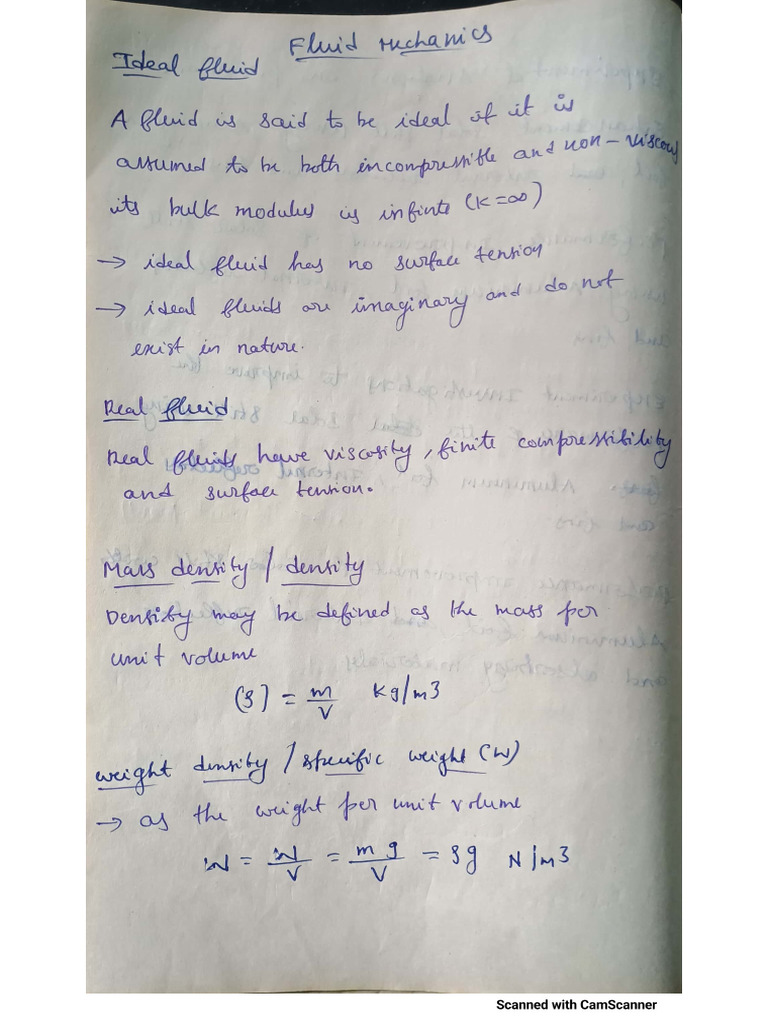 Fluid Mechanics
Ideal fluid
A fluid is said to be ideal if it is
assumed to be both incompressible and non-viscous
its bulk modulus is infinte (K=∞)
→ ideal fluid has no surface tension
→ ideal fluids are imaginary and do not
exist in nature.
Real fluid
Real fluids have viscosity, finite compressibility
and surface tension.
Mass density / density
Density may be defined as the mass per
unit volume
(ρ) = m/V kg/m3
weight density / specific weight (w)
→ as the weight per unit volume
w = W/V = mg/V = ρg N/m3
Scanned with CamScanner